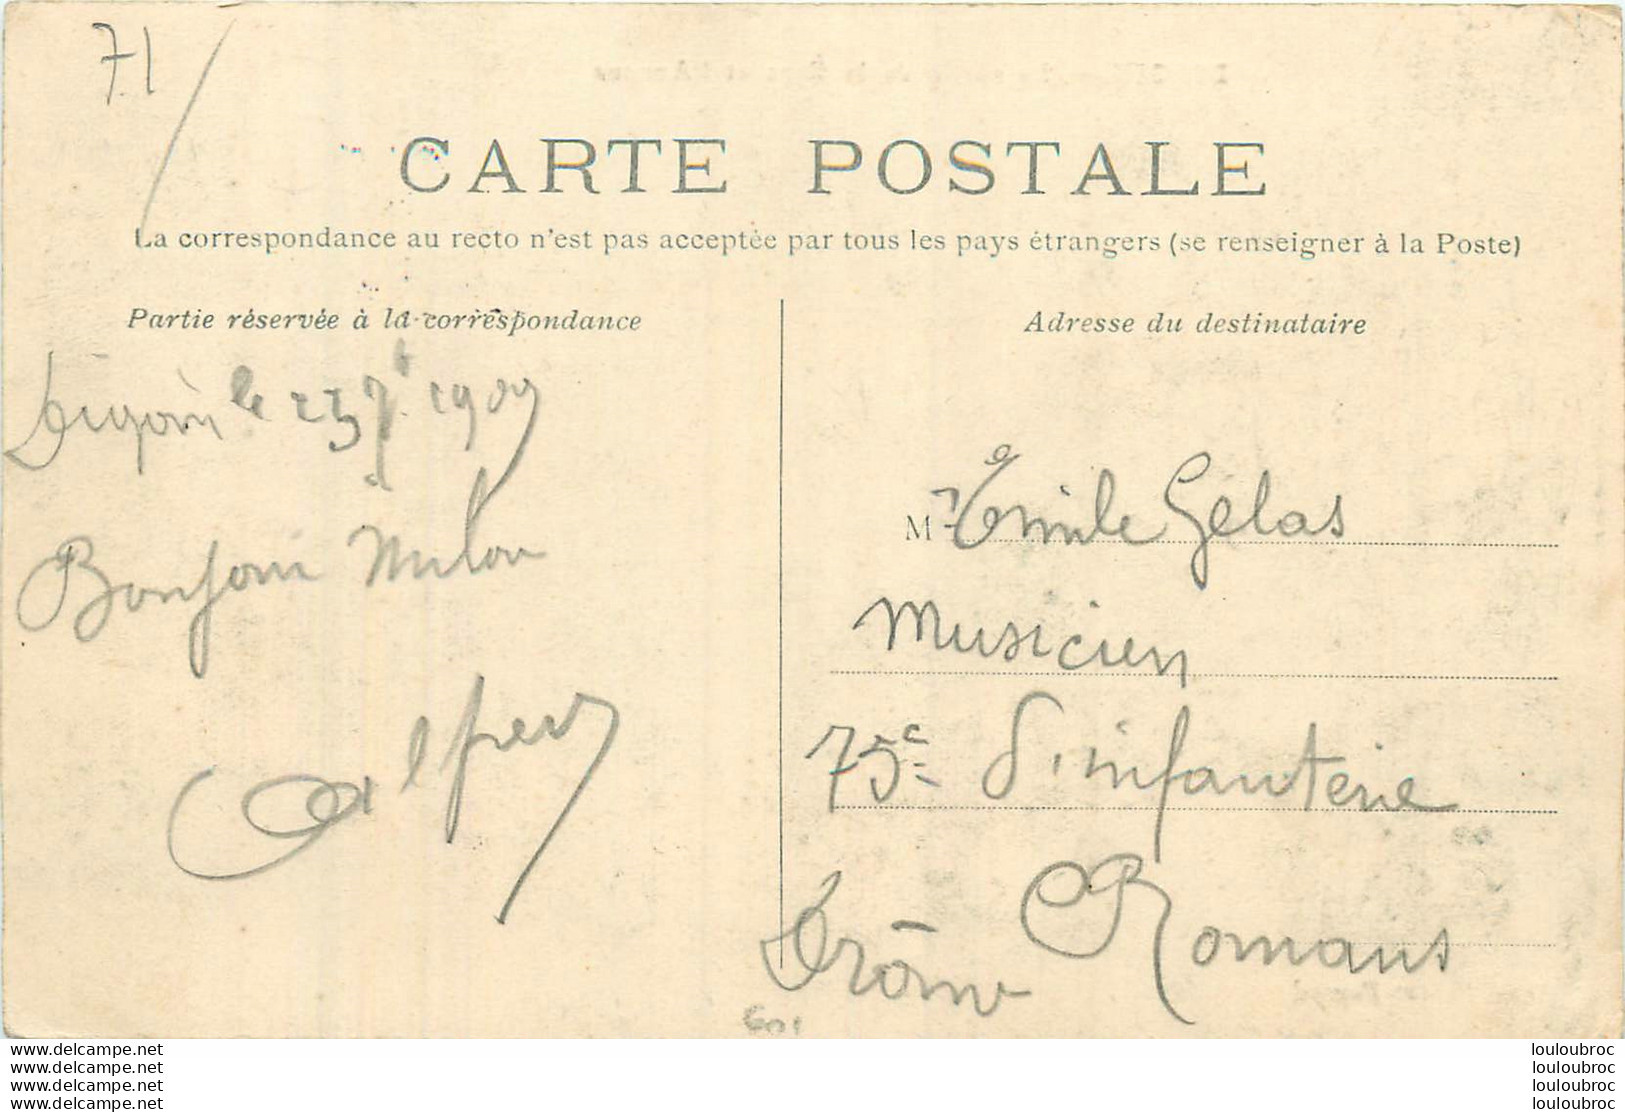 71
CARTE POSTALE
La correspondance au recto n'est pas acceptée par tous les pays étrangers (se renseigner à la Poste)
Partie réservée à la correspondance
Digoin le 23 7bre 1909
Bonjour Milou
Alfred
Adresse du destinataire
Mr Emile Gelas
Musicien
75e d'infanterie
Romans
Drôme
www.delcampe.net
www.delcampe.net
www.delcampe.net
www.delcampe.net
louloubroc
louloubroc
louloubroc
louloubroc